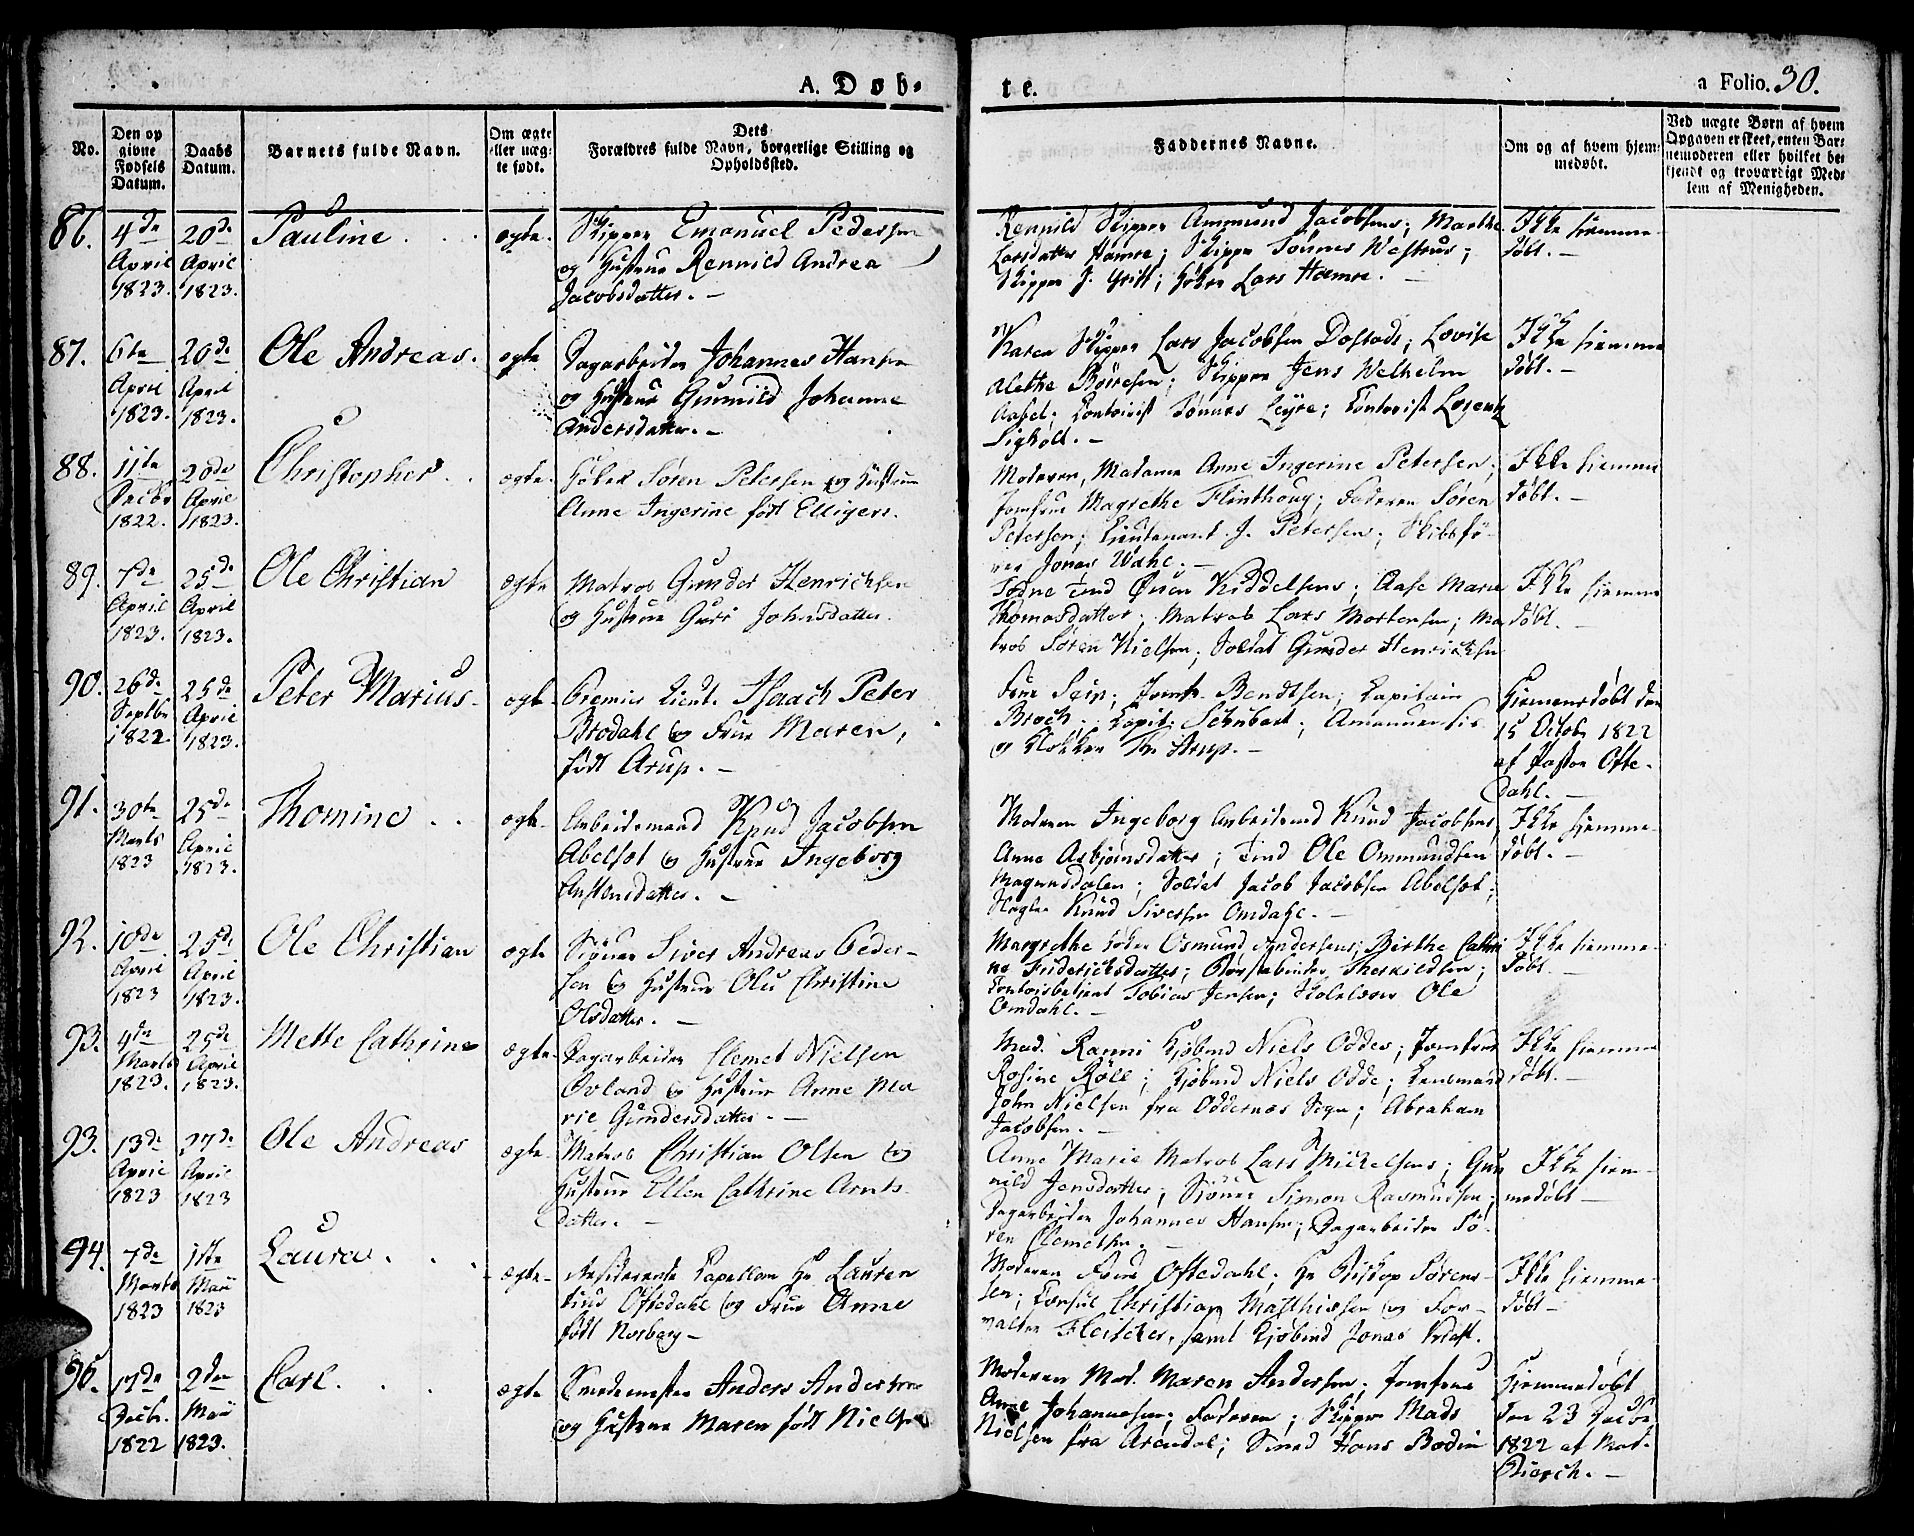 A. Døb-
te.
a Folio. 30.
No.
Den op
givne
Fødsels
Datum.
Daabs
Datum.
Barnets fulde Navn.
Om ægte
eller uæg-
te født.
Dets
Forældres fulde Navn, borgerlige Stilling og
Opholdssted.
Faddernes Navne.
Om og af hvem hjem-
medøbt.
Ved uægte Børn af hvem
Opgaven er skeet, enten Bar-
nemoderen eller hvilket be
kjendt og troværdigt Med-
lem af Menigheden.
86.
4de
April
1823.
20de
April
1823.
Pauline
ægte.
Skipper Emanuel Pedersen
og Hustrue Rennild Andrea
Jacobsdatter.
Rennild Skipper Ammund Jacobsens; Marthe
Larsdatter Hamre; Skipper Tønnes Westrus;
Skipper J. Gritt; Høker Lars Hamre.
Ikke hiemme-
døbt.
87.
6te
April
1823.
20de
April
1823.
Ole Andreas.
ægte
Dagarbeider Johannes Hansen
og Hustrue Gunnild Johanne
Andersdatter.
Karen Skipper Lars Jacobsen Dostads; Lovise
Alethe Børresen; Skipper Jens Welhelm
Aabel; Contoirist Tønnes Leyre; Contorist Lorentz
Sigholt.
Ikke hiemme
døbt.
88.
11te
Decbr
1822.
20de
April
1823.
Christopher
ægte.
Høker Søren Petersen og Hustrue
Anne Ingerine født Elligers.
Moderen, Madame Anne Ingerine Petersen;
Jomfrue Magrethe Flinthoug; Faderen Søren
Petersen; Lieutenant J. Petersen; Skibsfø-
rer Jonas Wahl.
Ikke hiemme
døbt.
89.
7de
April
1823.
25de
April
1823.
Ole Christian
ægte
Matros Gunder Henrichsen
og Hustrue Guri Johnsdatter.
Tone Tind Øuen Kiddelsens; Aase Marie
Thomasdatter; Matros Lars Mortensen; Ma
tros Søren Nielsen; Soldat Gunder Henrichsen
Ikke hiemme
døbt.
90.
26de
Septbr
1822
25de
April
1823.
Peter Marius
ægte
Premier Lieut. Isaach Peter
Brodahl og Frue Maren,
født Arup.
Frue Seip; Jomfr. Bendtsen; Capitain
Broch; Capit. Schubart; Amanuensis
og Klokker Arup.
Hiemmedøbt den
15 Octobr 1822
af Pastor Ofte-
dahl.
91.
30te
Marts
1823
25de
April
1823.
Thomine
ægte
Arbeidsmand Knud Jacobsen
Abelsøt og Hustrue Ingeborg
Austensdatter.
Moderen Ingeborg Arbeidsmd Knud Jacobsens,
Anne Asbjørnsdatter; Tind Ole Ommundsen
Magnusdalen; Soldat Jacob Jacobsen Abelsøt;
Knud Sivertsen Omdahl.
Ikke hjemme-
døbt.
92.
10de
April
1823
25de
April
1823.
Ole Christian
ægte
Siøuer Siver Andreas Peder-
sen og Hustrue Olu Christine
Olsdatter.
Margrethe Høker Osmund Andersens; Birthe Cathri
ne Friderichsdatter; Børstebinder Therkildsen;
Contoirbetient Tobias Jensen; Skolelærer Ole
Omdahl.
Ikke hiemme-
døbt.
93.
4de
Marts
1823.
25de
April
1823.
Mette Cathrine
ægte
Dagarbeider Clemet Nielsen
Øvland og Hustrue Anne Ma
rie Gundersdatter.
Mad. Ranni Kjøbmd Niels Oddes; Jomfrue
Rosine Röll; Kjøbmd Niels Odde; Lensmand
John Nielsen fra Oddernæs Sogn; Abraham
Jacobsen.
Ikke hiemme
døbt.
93.
13de
April
1823
27de
April
1823
Ole Andreas
ægte
Matros Christian Olsen og
Hustrue Ellen Cathrine Arnts-
datter.
Anne Marie Matros Lars Mickelsens; Gun
nild Jensdatter; Siøuer Simon Rasmussen;
Dagarbeider Johannes Hansen; Dagarbeider Sø-
ren Clemetsen.
Ikke hiem-
medøbt
94.
7de
Marts
1823
1ste
Maii
1823
Laura
ægte
Residerende Capellan Hr Lauren
tius Oftedahl og Frue Anne
født Norberg
Moderen Frue Oftedahl; Hr Biskop Sørens-
sen; Consul Christian Matthiesen og For-
valter Fleischer, samt Kjøbmd Jonas Kraft.
Ikke hiemme
døbt
96.
17de
Decbr.
1822
2den
Maii
1823.
Carl.
ægte
Smedemester Anders Andersen
og Hustrue Maren født Nielsen
Moderen Mad. Maren Andersen; Jomfrue
Anne Johannesen; Faderen; Skipper Mads
Nielsen fra Arendal; Smed Hans Bodin
Hiemmedøbt
den 23 Decbr
1822 af Mad.